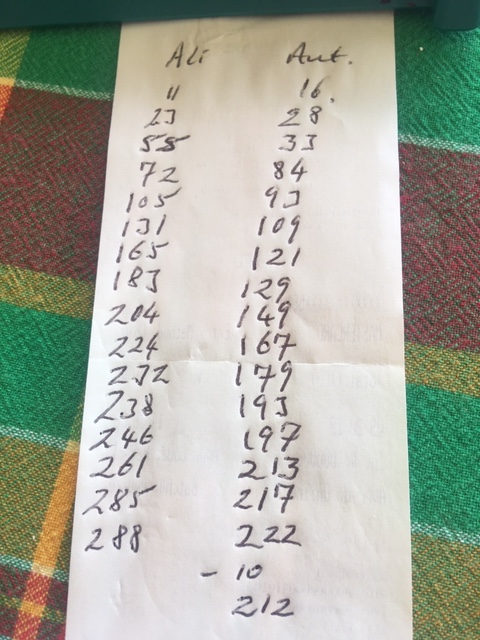 Ali Ant.
11 16
23 28
55 33
72 84
105 93
131 109
165 121
183 129
204 149
224 167
232 179
238 193
246 197
261 213
285 217
288 222
- 10
212